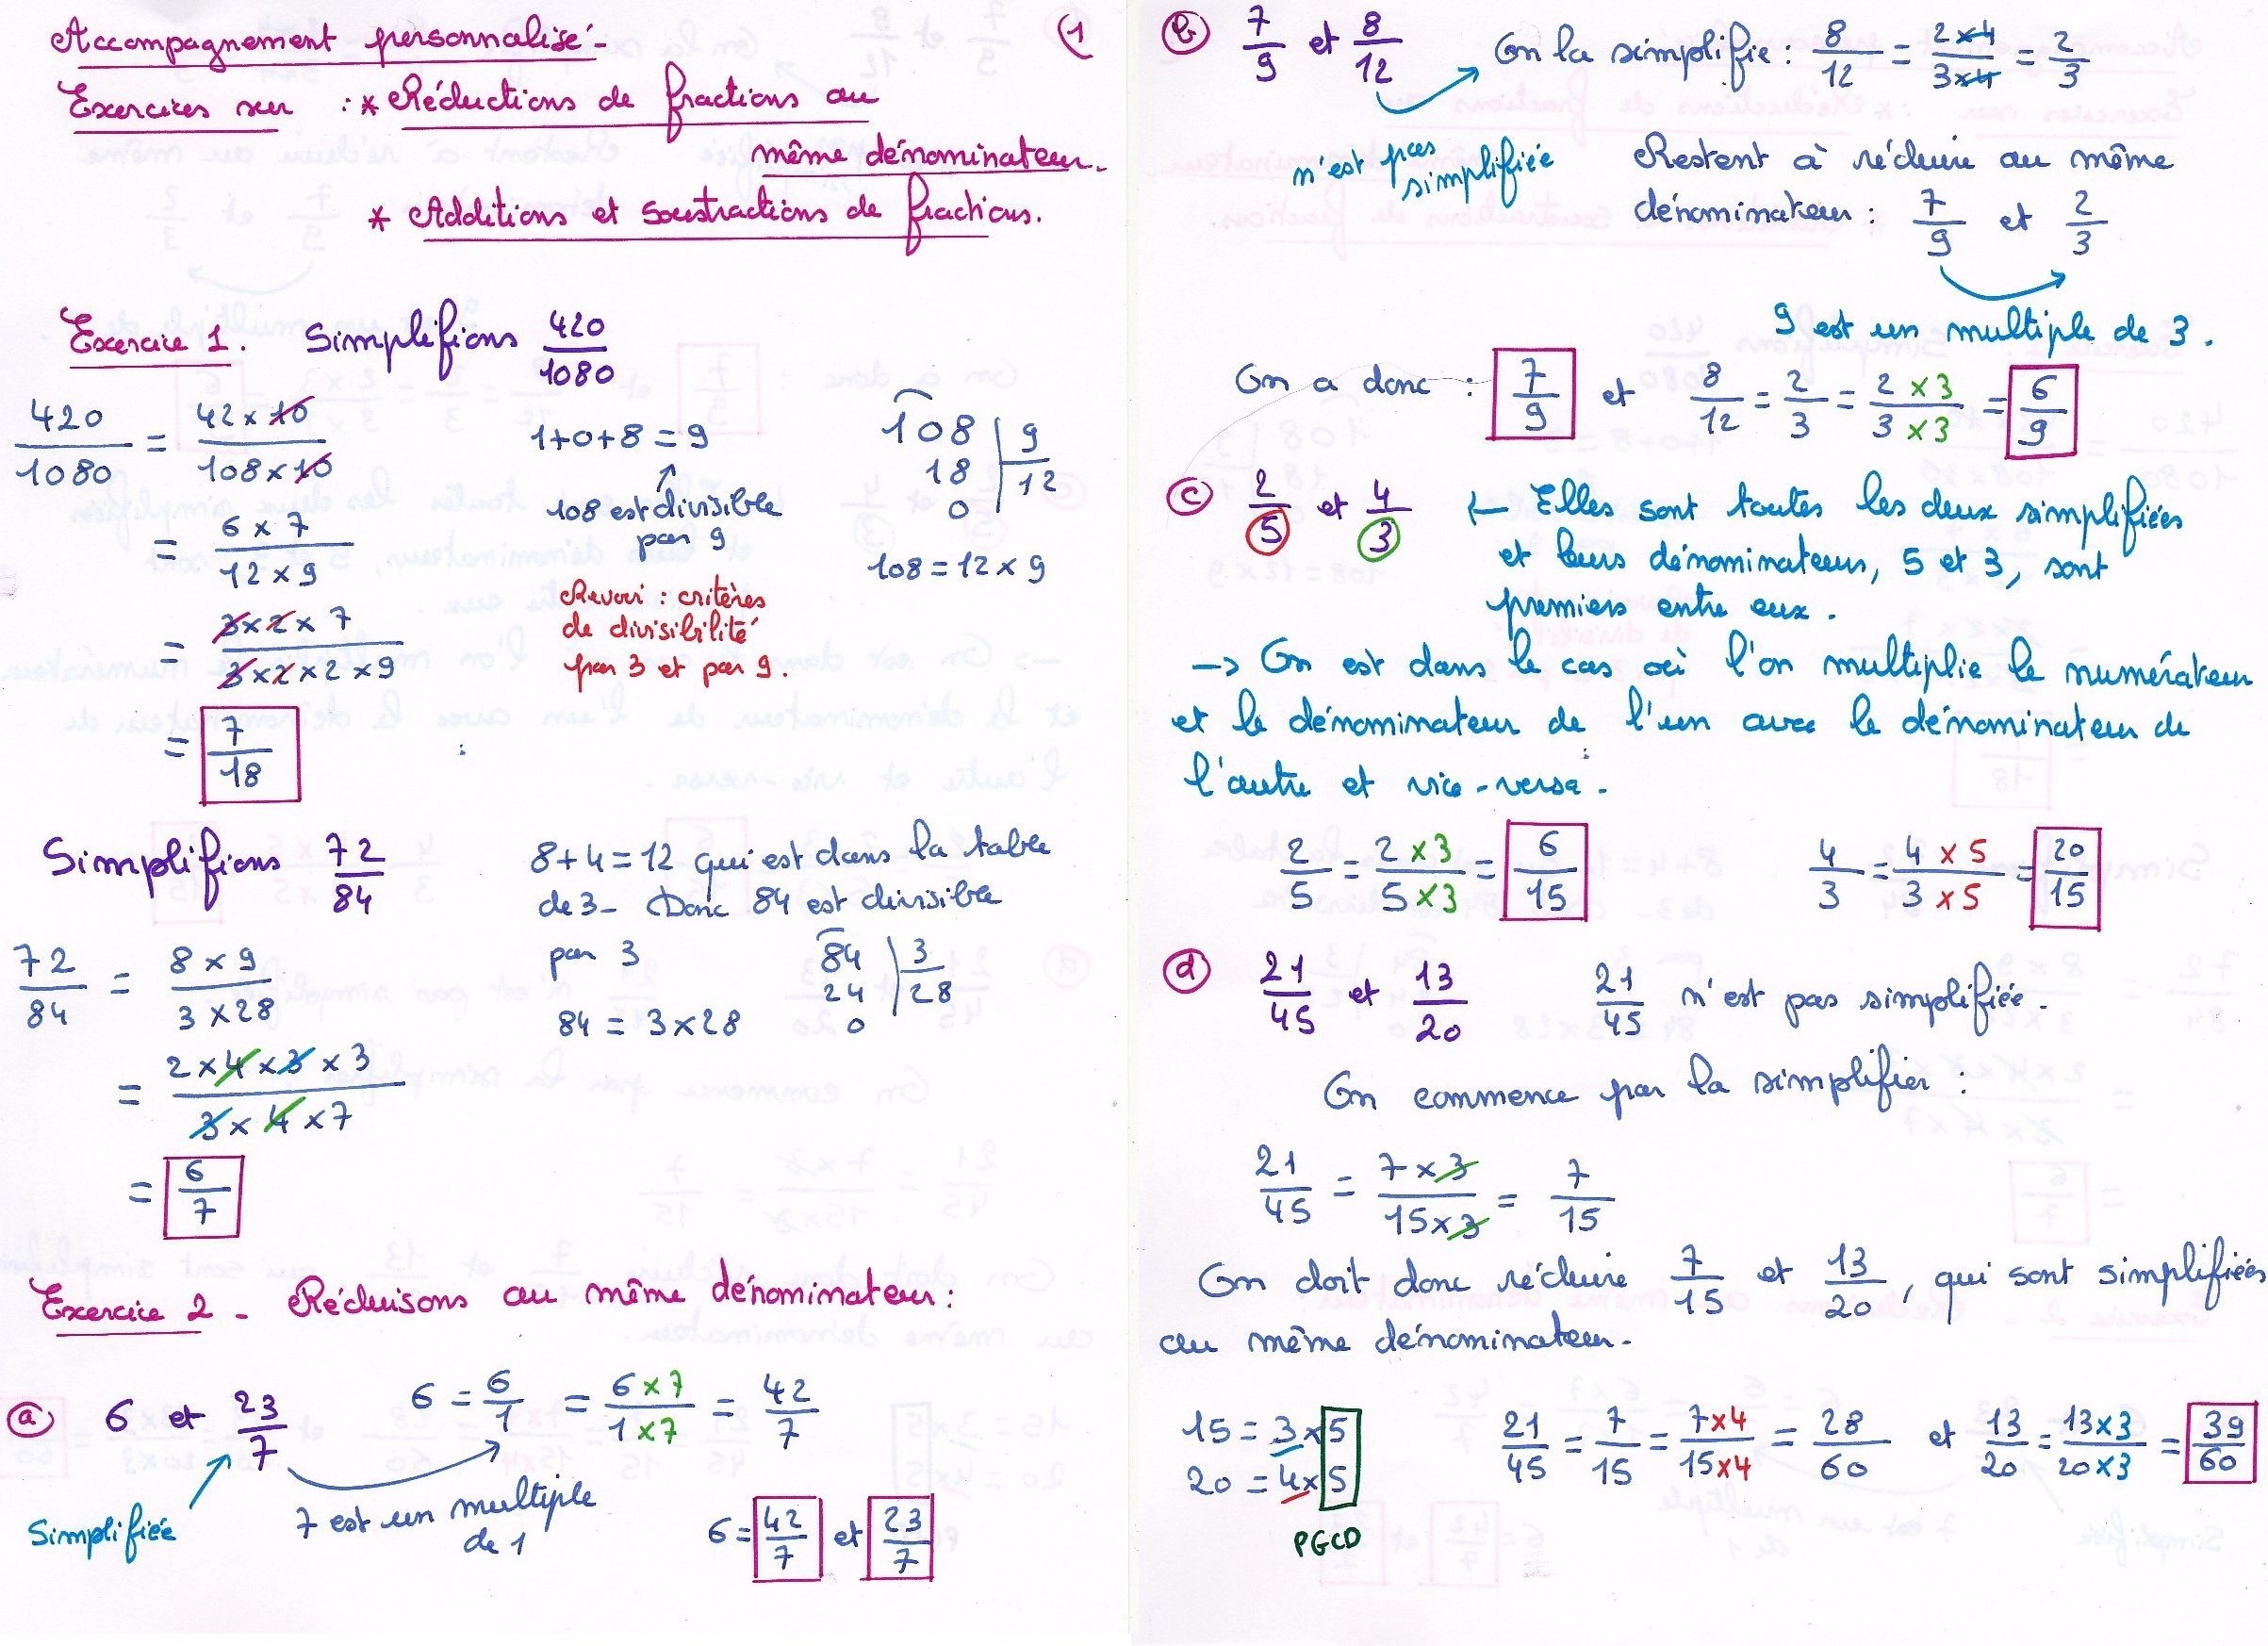 Accompagnement personnalisé - (1
Exercices sur : * Réductions de fractions au
même dénominateur.
* Additions et soustractions de fractions.
Exercice 1. Simplifions 420/1080
420/1080 = 42 x 10/108 x 10
= 6 x 7/12 x 9
= 3 x 2 x 7/3 x 2 x 2 x 9
= 7/18
1+0+8 = 9
↑
108 est divisible
par 9
Revoir : critères
de divisibilité
par 3 et par 9.
108 | 9
18 | 12
0
108 = 12 x 9
Simplifions 72/84
72/84 = 8 x 9/3 x 28
= 2 x 4 x 3 x 3/3 x 4 x 7
= 6/7
8+4 = 12 qui est dans la table
de 3 - Donc 84 est divisible
par 3
84 = 3 x 28
84 | 3
24 | 28
0
Exercice 2 - Réduisons au même dénominateur :
a 6 et 23/7 6 = 6/1 = 6 x 7/1 x 7 = 42/7
Simplifiée
7 est un multiple
de 1
6 = 42/7 et 23/7
b 7/9 et 8/12 → On la simplifie : 8/12 = 2 x 4/3 x 4 = 2/3
n'est pas
simplifiée
Restent à réduire au même
dénominateur : 7/9 et 2/3
9 est un multiple de 3.
On a donc : 7/9 et 8/12 = 2/3 = 2 x 3/3 x 3 = 6/9
c 2/5 et 4/3 ← Elles sont toutes les deux simplifiées
et leurs dénominateurs, 5 et 3, sont
premiers entre eux.
→ On est dans le cas où l'on multiplie le numérateur
et le dénominateur de l'un avec le dénominateur de
l'autre et vice-versa.
2/5 = 2 x 3/5 x 3 = 6/15 4/3 = 4 x 5/3 x 5 = 20/15
d 21/45 et 13/20 21/45 n'est pas simplifiée.
On commence par la simplifier :
21/45 = 7 x 3/15 x 3 = 7/15
On doit donc réduire 7/15 et 13/20, qui sont simplifiées
au même dénominateur.
15 = 3 x 5
20 = 4 x 5
PGCD
21/45 = 7/15 = 7 x 4/15 x 4 = 28/60 et 13/20 = 13 x 3/20 x 3 = 39/60